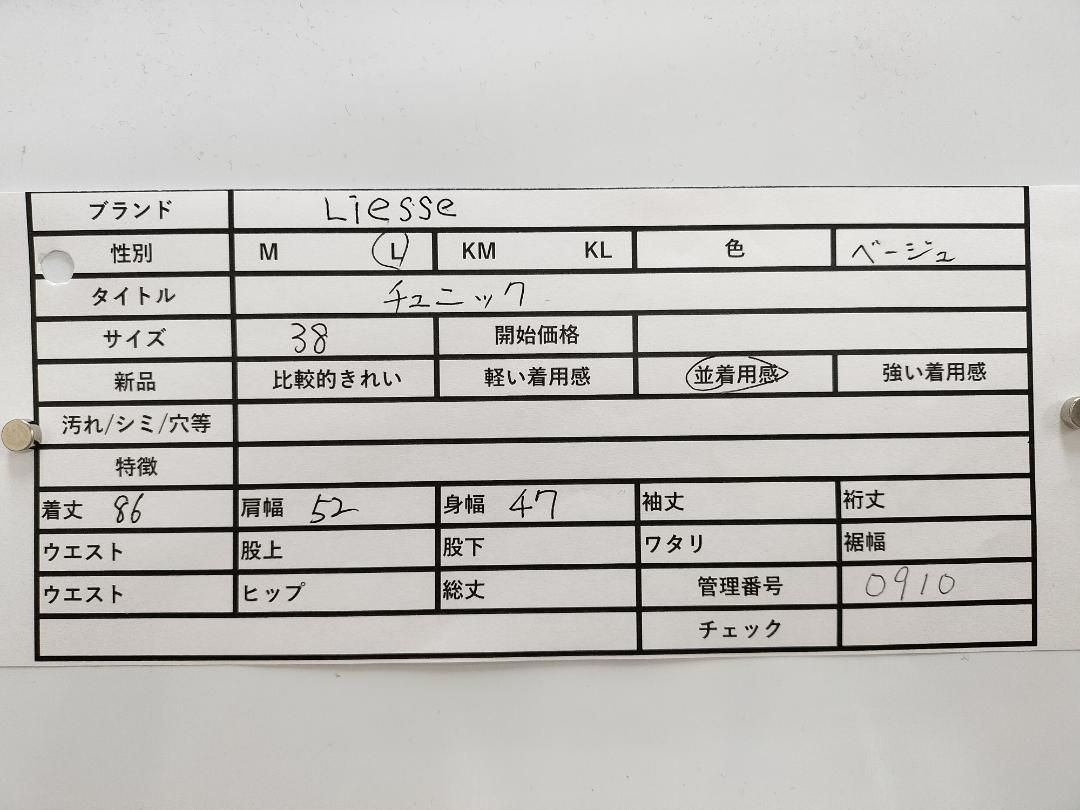 ブランド Liesse
性別 M L KM KL 色 ベージュ
タイトル チュニック
サイズ 38 開始価格
新品 比較的きれい 軽い着用感 並着用感 強い着用感
汚れ/シミ/穴等
特徴
着丈 86 肩幅 52 身幅 47 袖丈 裄丈
ウエスト 股上 股下 ワタリ 裾幅
ウエスト ヒップ 総丈 管理番号 0910
チェック